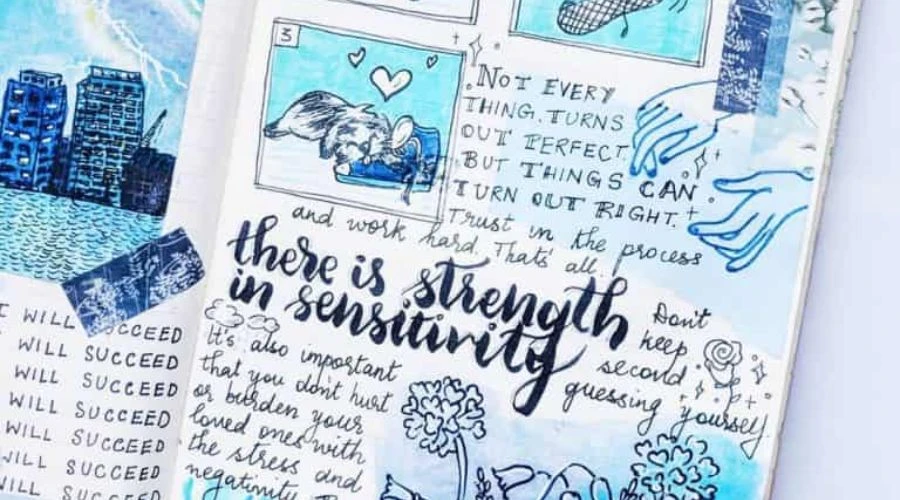 3
NOT EVERY
THING. TURNS
OUT PERFECT.
BUT THINGS CAN
TURN OUT RIGHT.
Trust in the process
and work hard. That's all.
there is strength
in sensitivity
Don't
keep
second
guessing yourself.
It's also important
that you don't hurt
or burden your
loved ones with
the stress and
negativity
I WILL SUCCEED
WILL SUCCEED
WILL SUCCEED
WILL SUCCEED
WILL SUCCEED
WILL SUCCEED
WILL SUCCEED